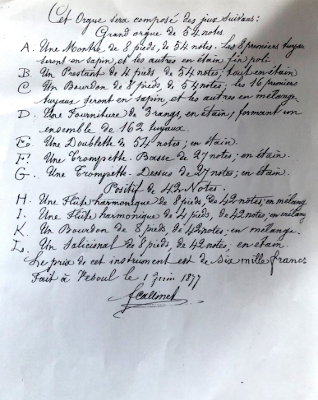 Cet Orgue sera composé des jeux Suivans:
Grand orgue de 54 notes
A. Une Montre de 8 pieds, de 54 notes. Les 8 premiers tuyaux
seront en sapin, et les autres en étain fin poli.
B. Un Prestant de 4 pieds de 54 notes, tout en étain
C. Un Bourdon de 8 pieds, de 54 notes; les 16 premiers
tuyaux seront en sapin, et les autres en mélange.
D. Une Fourniture de 3 rangs, en étain, formant un
ensemble de 162 tuyaux.
E. Une Doublette de 54 notes, en étain.
F. Une Trompette-Basse de 27 notes, en étain.
G. Une Trompette-Dessus de 27 notes; en étain.
Positif de 42 Notes.
H. Une Flûte harmonique de 8 pieds, de 42 notes, en mélang
I. Une Flûte harmonique de 4 pieds, de 42 notes; en mélang
K. Un Bourdon de 8 pieds de 42 notes; en mélange.
L. Un Salicional de 8 pieds, de 42 notes, en étain.
Le prix de cet instrument est de Six mille francs
Fait à Vesoul le 1 Juin 1877